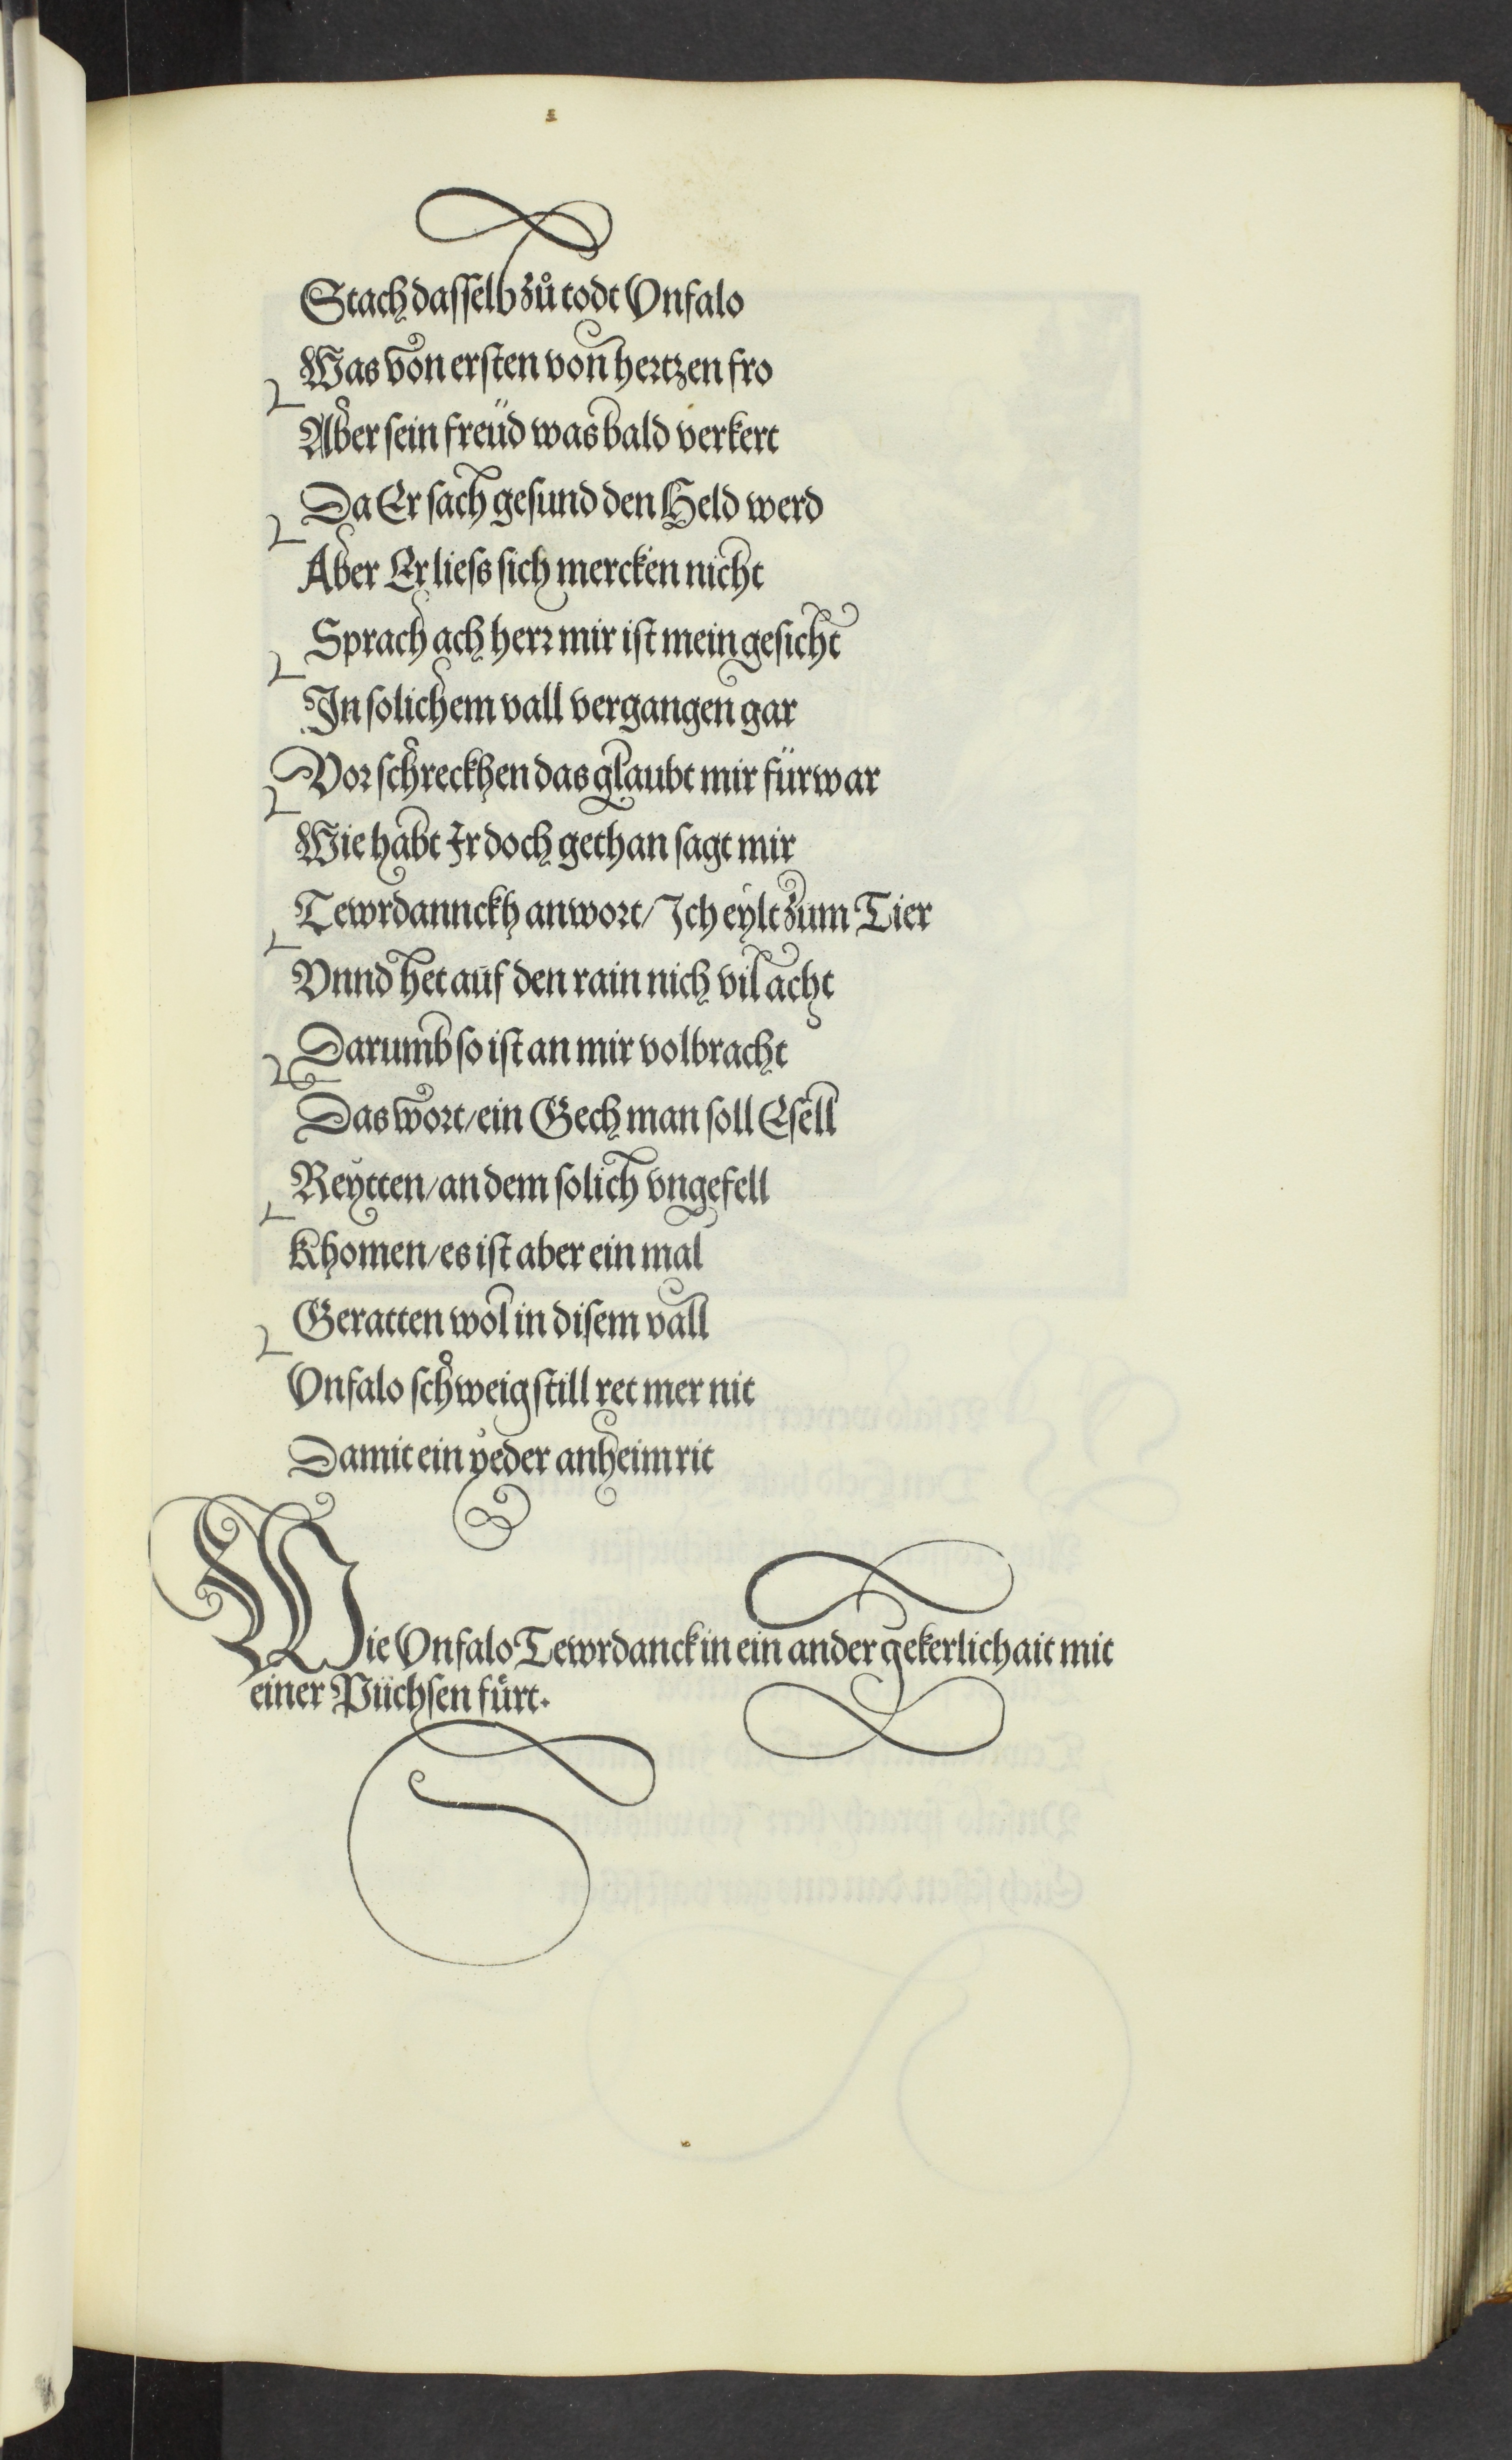 Stach dasselb zů todt Vnfalo
Was von ersten von hertzen fro
Aber sein freüd was bald verkert
Da Er sach gesund den Held werd
Aber Er liess sich mercken nicht
Sprach ach herr mir ist mein gesicht
In solichem vall vergangen gar
Vor schreckhen das glaubt mir fürwar
Wie habt Ir doch gethan sagt mir
Tewrdannckh anwort/ Ich eylt zum Tier
Vnnd het auf den rain nich vil acht
Darumb so ist an mir volbracht
Das wort/ ein Gech man soll Esell
Reytten/ an dem solich vngefell
Khomen/ es ist aber ein mal
Geratten wol in disem vall
Vnfalo schweig still ret mer nit
Damit ein yeder anheim rit
Wie Vnfalo Tewrdanck in ein ander gekerlichait mit
einer Püchsen fürt.